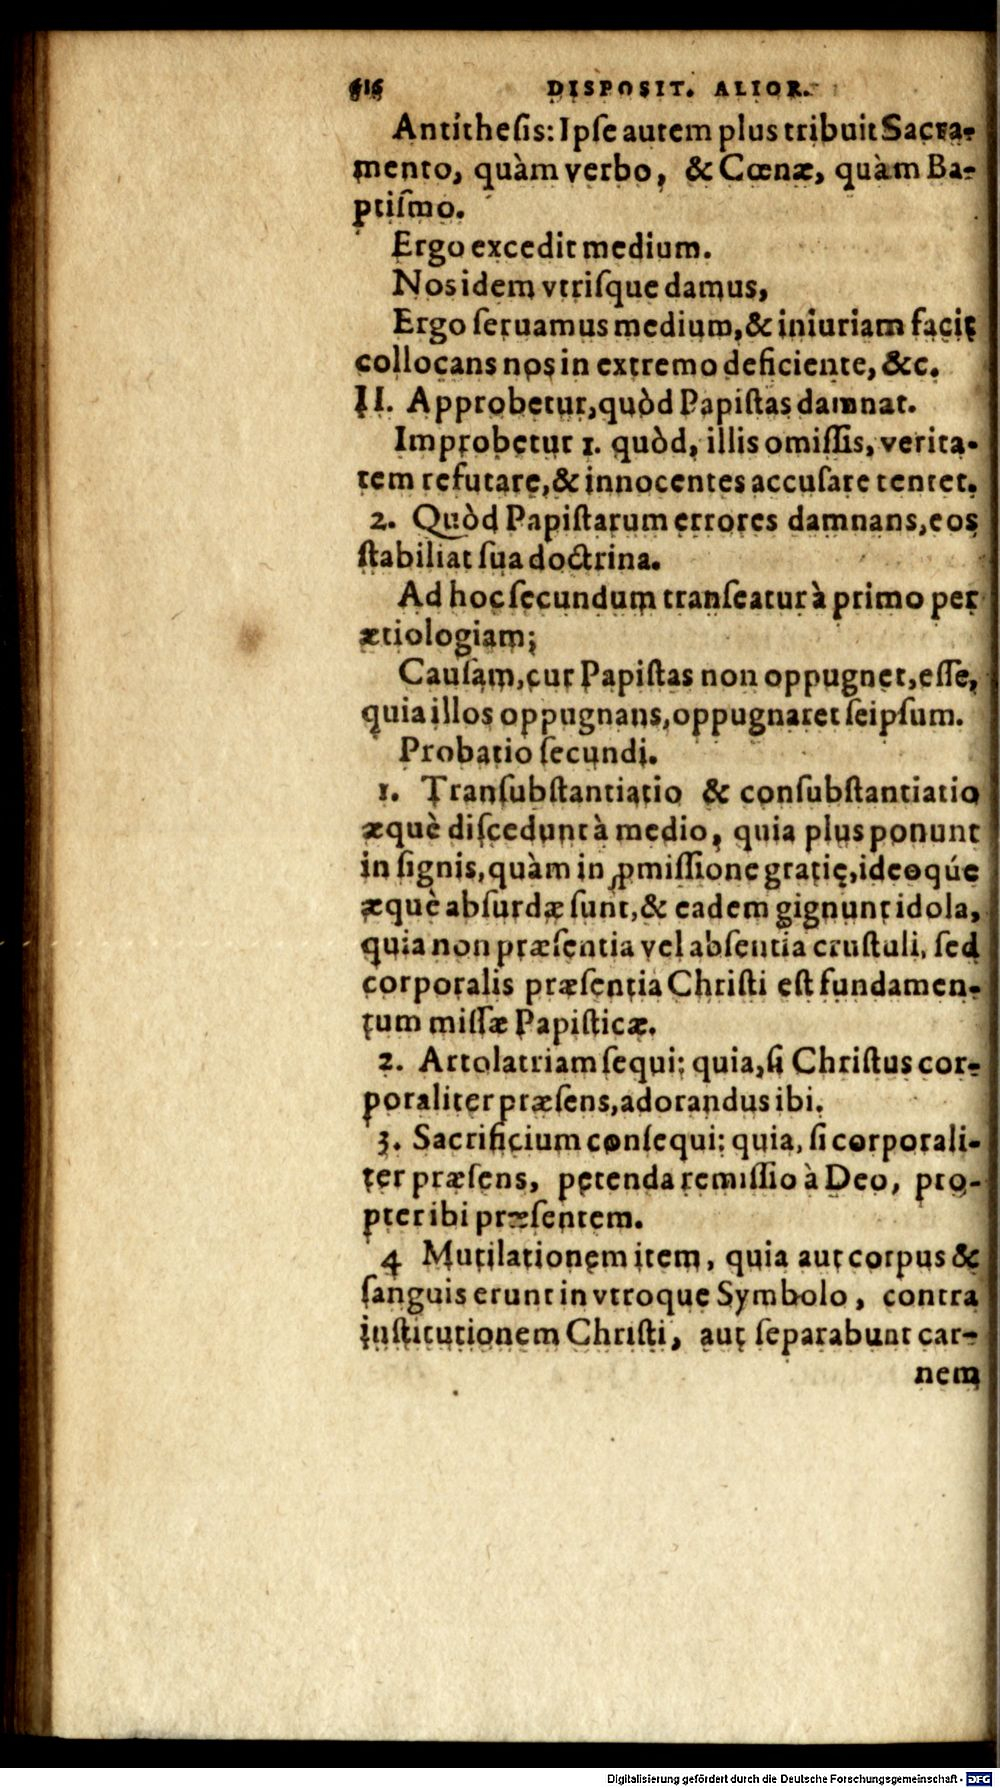 616 DISPOSIT. ALIOR.
Antithesis: Ipſe autem plus tribuit Sacra-
mento, quàm verbo, & Cœnæ, quàm Ba-
ptiſmo.
Ergo excedit medium.
Nos idem vtriſque damus,
Ergo ſeruamus medium, & iniuriam facit
collocans nos in extremo deficiente, &c.
II. Approbetur, quòd Papiſtas damnat.
Improbetur 1. quòd, illis omiſſis, verita-
tem refutare, & innocentes accuſare tentet.
2. Quòd Papiſtarum errores damnans, eos
ſtabiliat ſua doctrina.
Ad hoc ſecundum tranſeatur à primo per
ætiologiam;
Cauſam, cur Papiſtas non oppugnet, eſſe,
quia illos oppugnans, oppugnaret ſeipſum.
Probatio ſecundi.
1. Tranſubſtantiatio & conſubſtantiatio
æquè diſcedunt à medio, quia plus ponunt
in ſignis, quàm in ꝓmiſſione gratię, ideoq́ue
æquè abſurdæ ſunt, & eadem gignunt idola,
quia non præſentia vel abſentia cruſtuli, ſed
corporalis præſentia Chriſti eſt fundamen-
tum miſſæ Papiſticæ.
2. Artolatriam ſequi; quia, ſi Chriſtus cor-
poraliter præſens, adorandus ibi.
3. Sacrificium conſequi; quia, ſi corporali-
ter præſens, petenda remiſſio à Deo, pro-
pter ibi præſentem.
4 Mutilationem item, quia aut corpus &
ſanguis erunt in vtroque Symbolo, contra
inſtitutionem Chriſti, aut ſeparabunt car-
nem
Digitalisierung gefördert durch die Deutsche Forschungsgemeinschaft - DFG